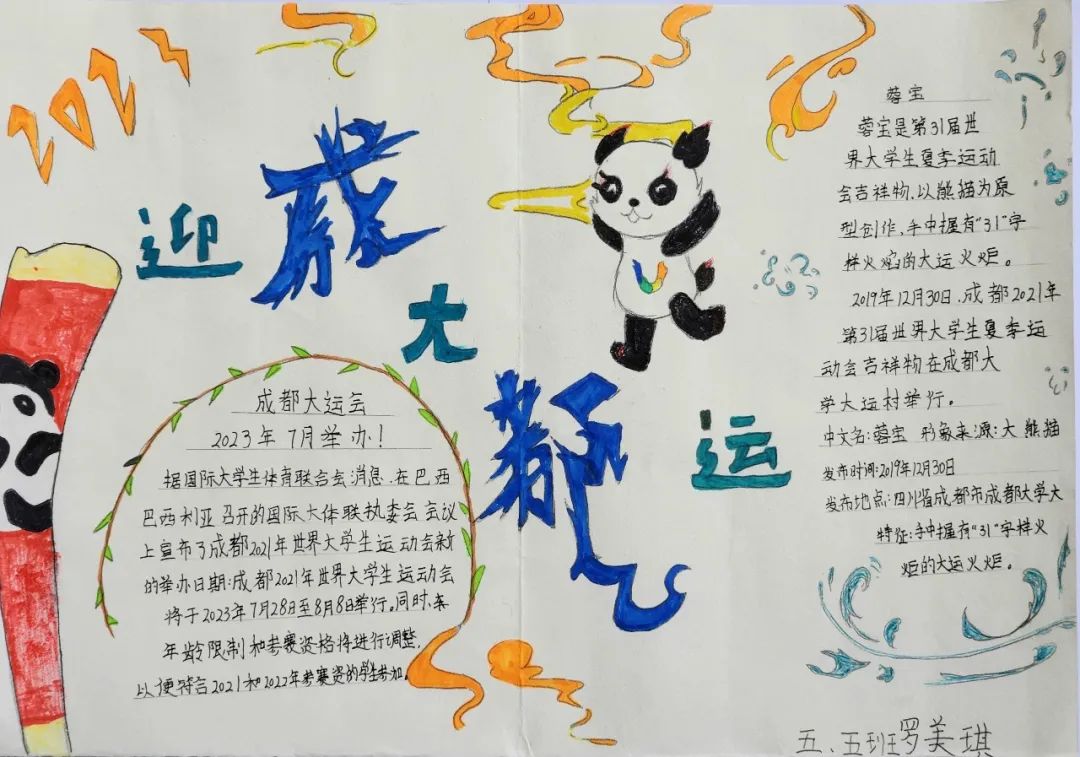 2021
迎
成
大
都
运
成都大运会
2023年7月举办!
据国际大学生体育联合会消息,在巴西
巴西利亚召开的国际大体联执委会会议
上宣布了成都2021年世界大学生运动会新
的举办日期:成都2021年世界大学生运动会
将于2023年7月28日至8月8日举行。同时,参赛
年龄限制和参赛资格将进行调整,
以便符合2021和2022年参赛资的学生参加。
蓉宝
蓉宝是第31届世
界大学生夏季运动
会吉祥物,以熊猫为原
型创作,手中握有"31"字
样火焰的大运火炬。
2019年12月30日,成都2021年
第31届世界大学生夏季运
动会吉祥物在成都大
学大运村举行。
中文名:蓉宝 形象来源:大熊猫
发布时间:2019年12月30日
发布地点:四川省成都市成都大学大
特征:手中握有"31"字样火
炬的大运火炬。
五、五班罗美琪